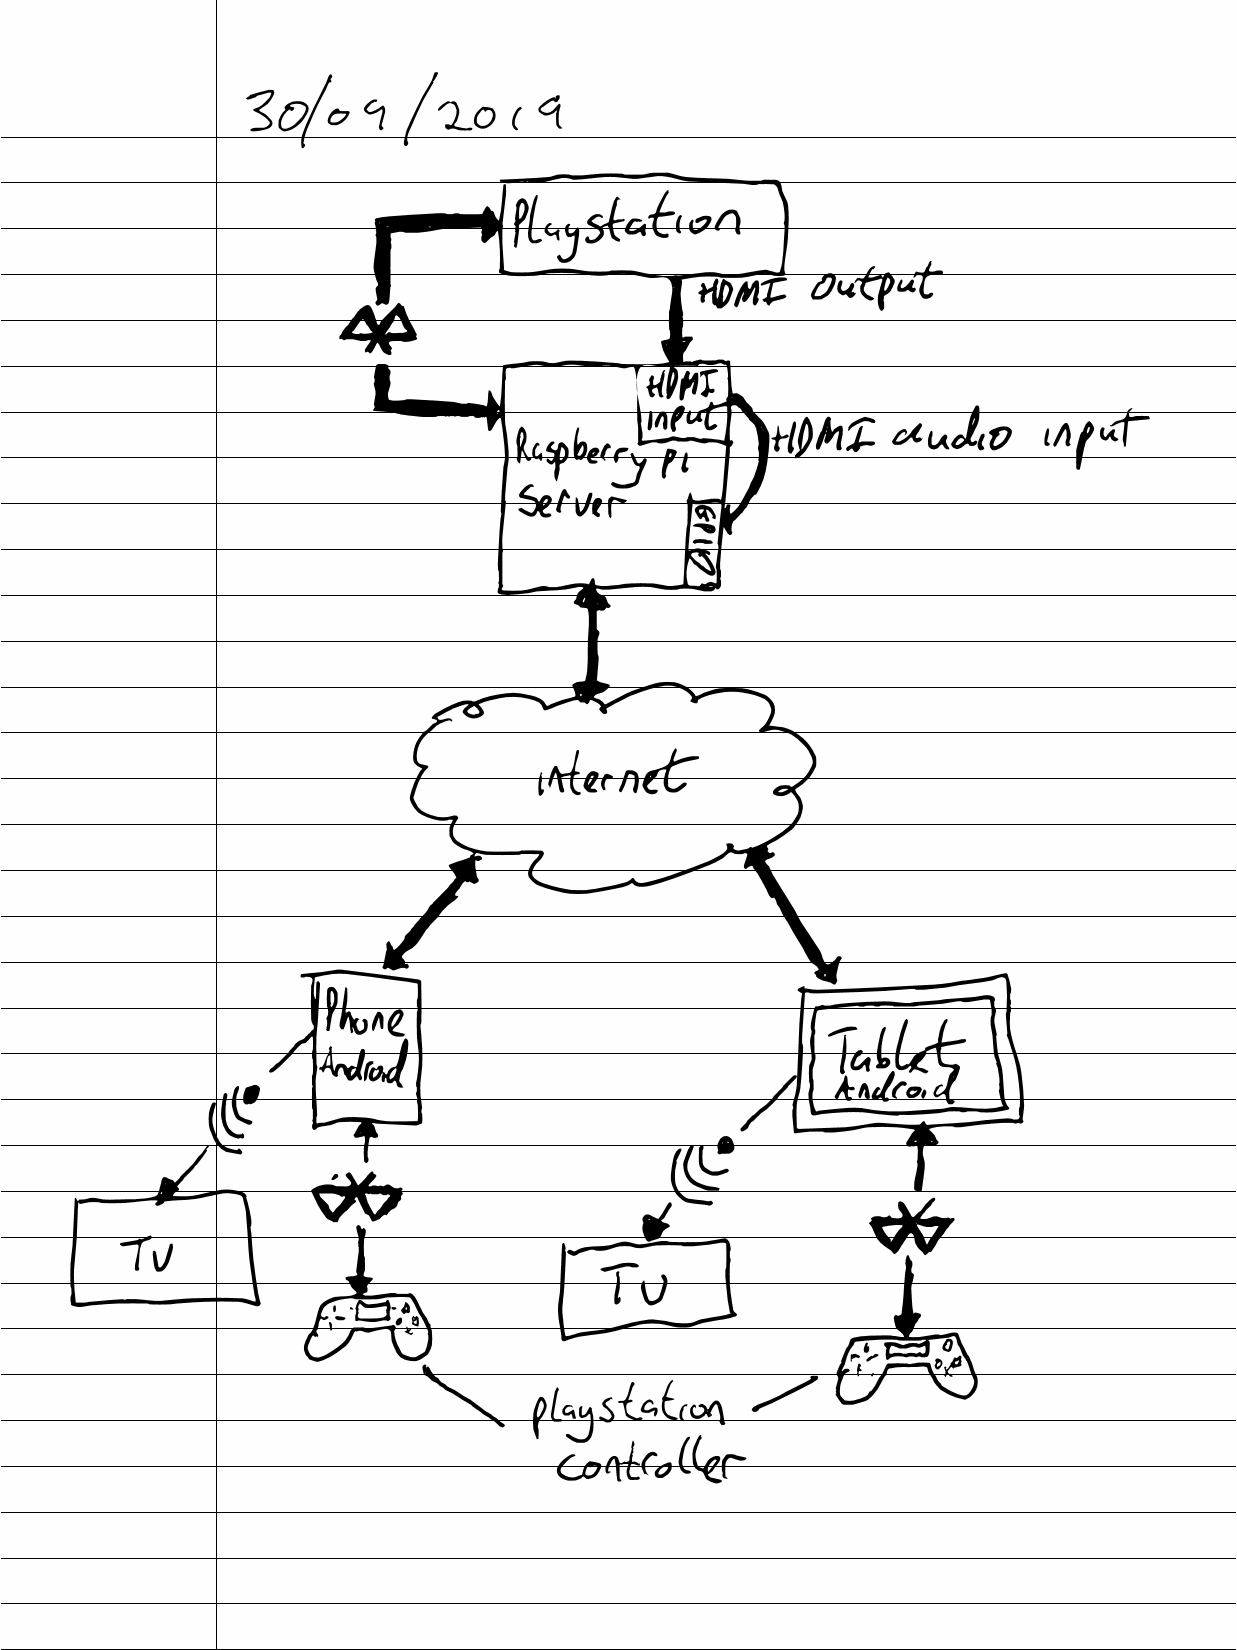 30/09/2019
Playstation
HDMI output
HDMI
input
HDMI audio input
Raspberry Pi
Server
GPIO
internet
Phone
Android
Tablet
Android
TV
TV
playstation
controller